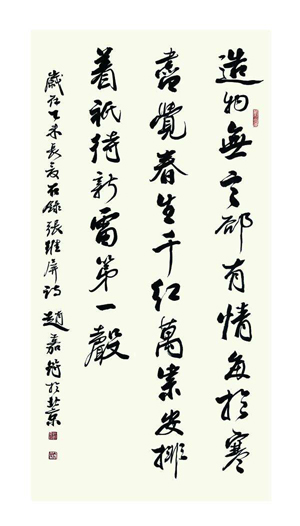 造物無言郤有情每於寒
盡覺春生千紅萬紫安排
着祇待新雷第一聲
歲在乙未長夏右錄張維屏詩 趙嘉於北京